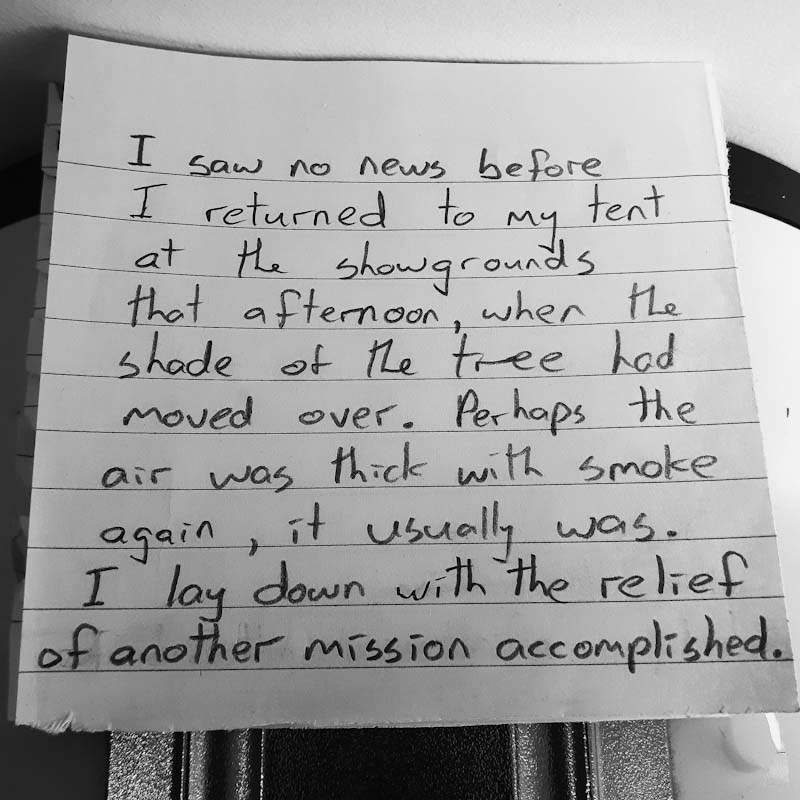 I saw no news before
I returned to my tent
at the showgrounds
that afternoon, when the
shade of the tree had
moved over. Perhaps the
air was thick with smoke
again, it usually was.
I lay down with the relief
of another mission accomplished.